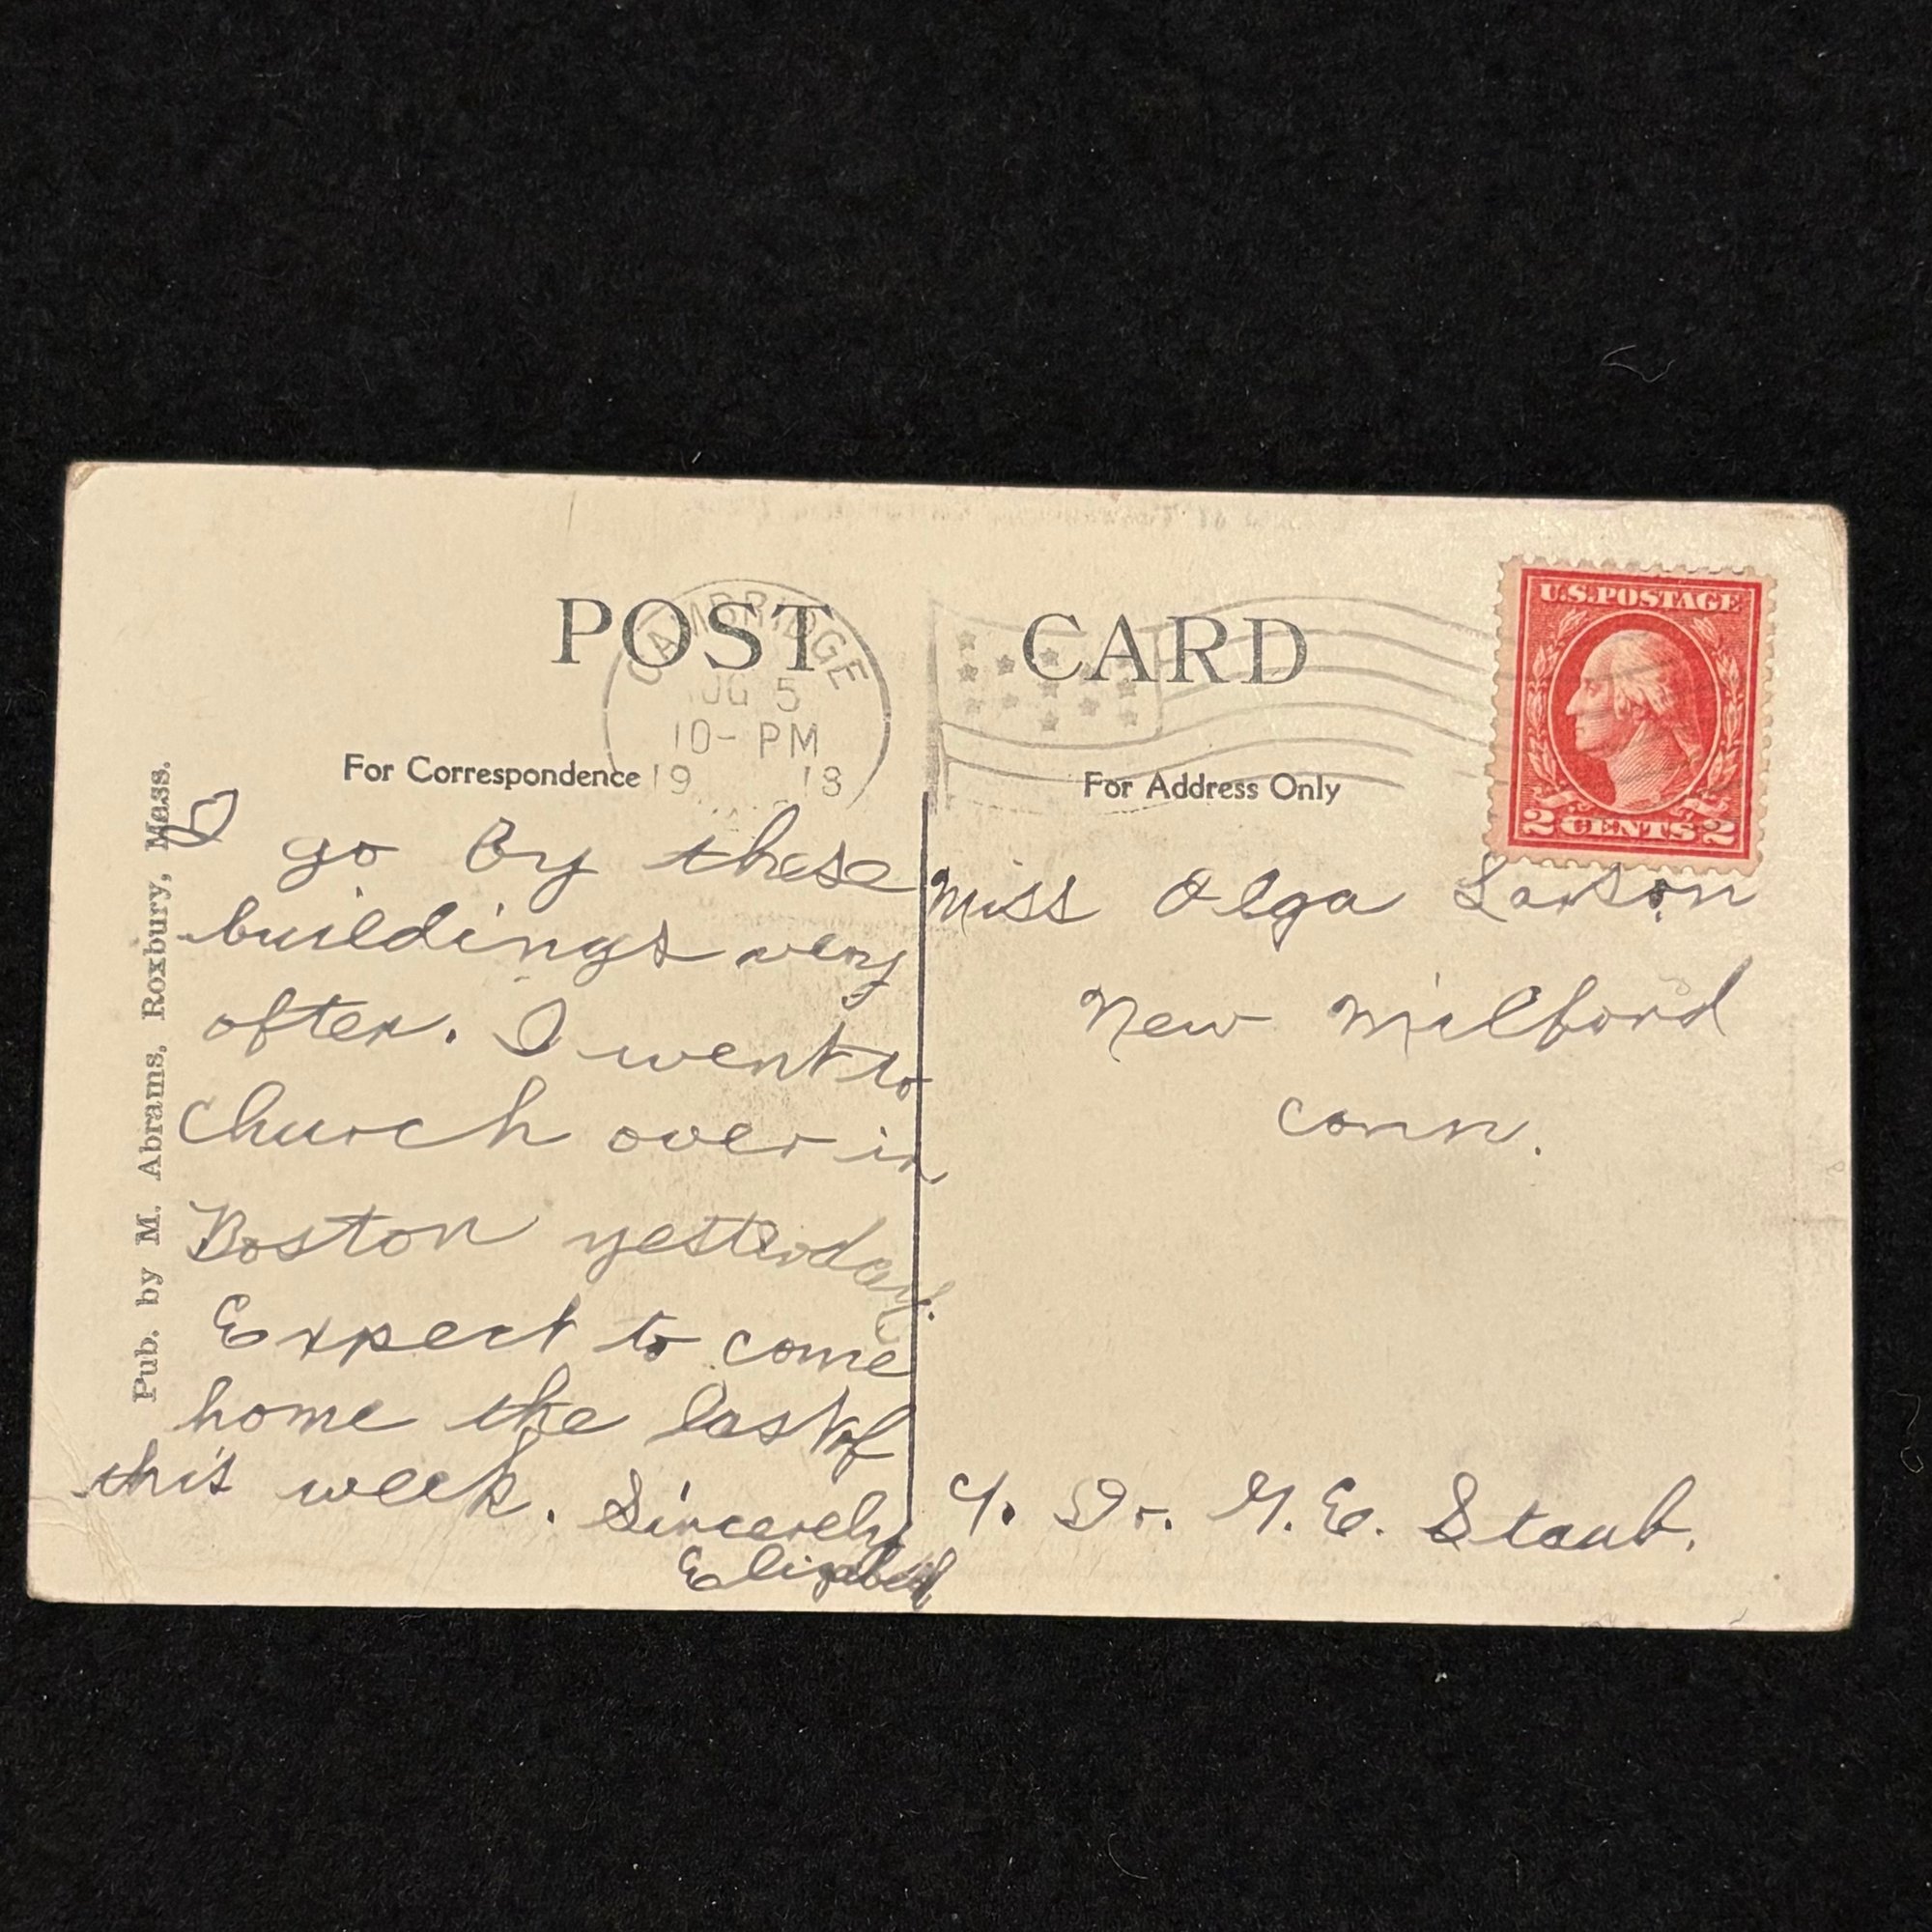 POST CARD
CAMBRIDGE
UG 5
10- PM
19 18
U.S. POSTAGE
2 CENTS 2
For Correspondence
For Address Only
Pub. by M. Abrams, Roxbury, Mass.
I go by these
buildings very
often. I went to
church over in
Boston yesterday.
Expect to come
home the last of
this week. Sincerely
Elizabeth
Miss Olga Larson
New Milford
Conn.
c/o Dr. G. E. Staub.